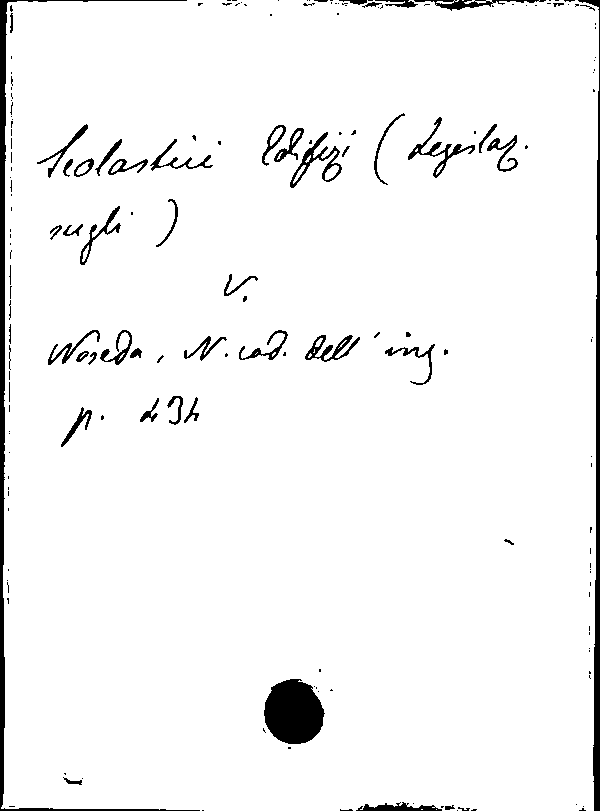 Scolastici Edifizi (Legislaz.
sugli)
V.
Noseda, N. cod. dell'ing.
p. 434